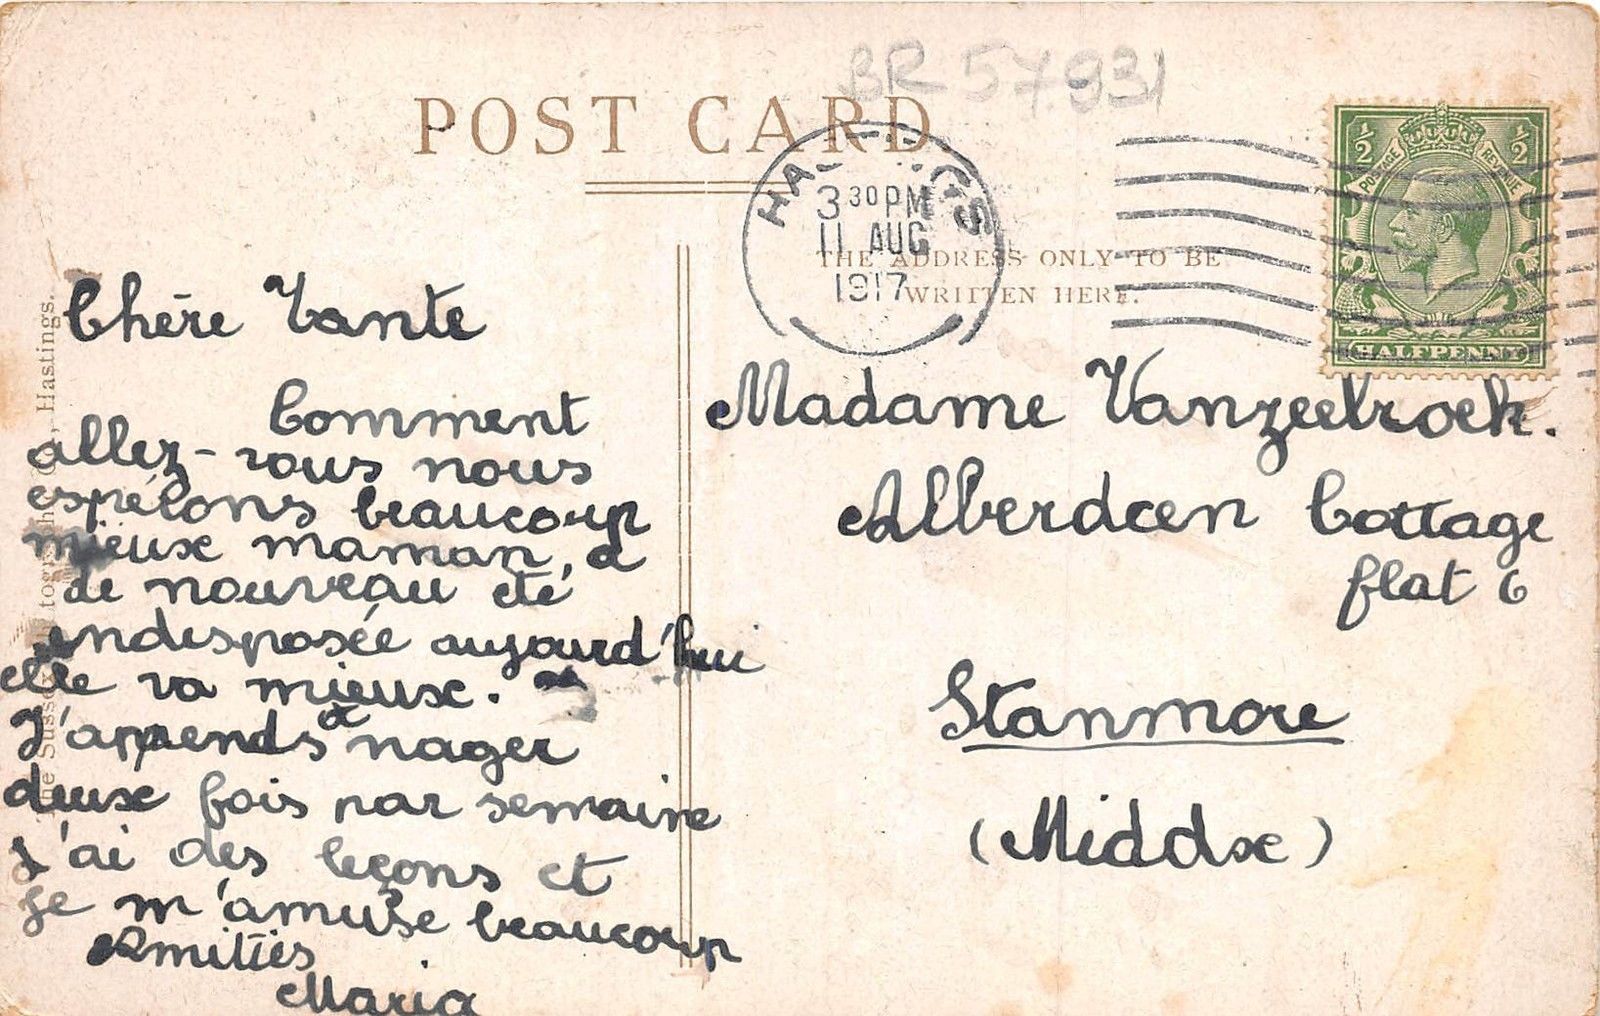 BR 57.931
POST CARD
HASTINGS
3 30 PM
11 AUG
1917
THE ADDRESS ONLY TO BE
WRITTEN HERE.
½ ½
POSTAGE REVENUE
HALFPENNY
Chère Tante
Comment
allez-vous nous
espérons beaucoup
mieux maman a
de nouveau été
indisposée aujourd'hui
elle va mieux.
J'apprends à nager
deux fois par semaine
J'ai des leçons et
je m'amuse beaucoup
Amitiés
Maria
Madame Vanzeebroek.
Alberdeen Cottage
flat 6
Stanmore
(Middsx)
The Sussex Photographic Co., Hastings.